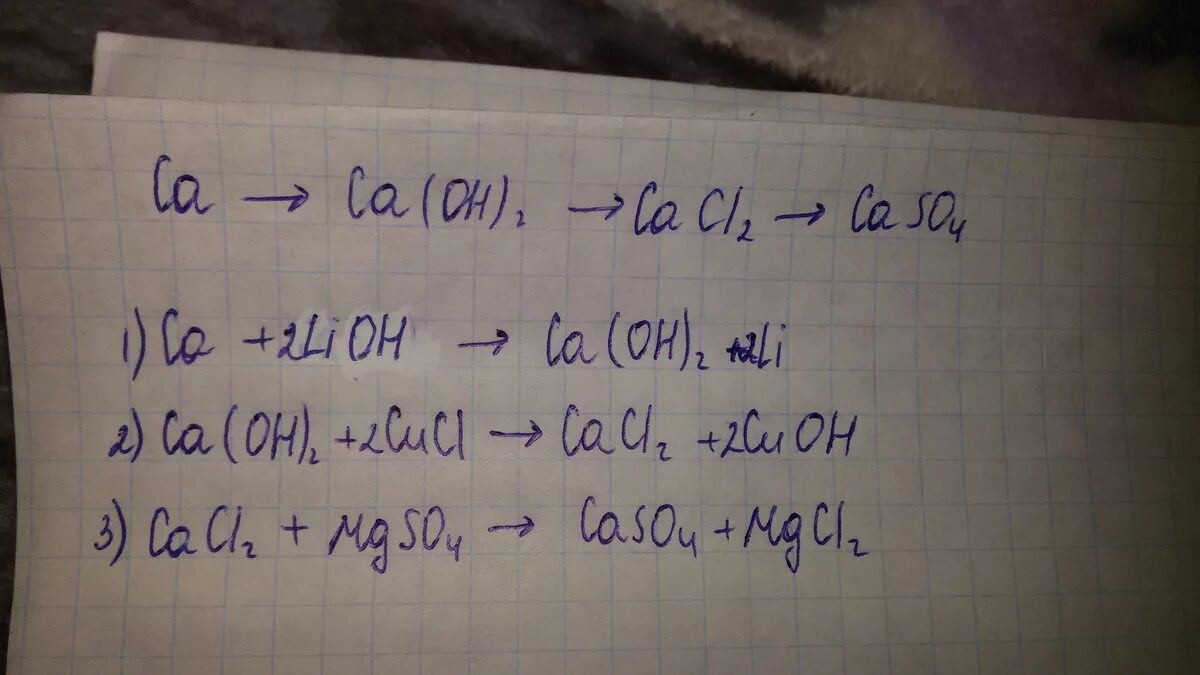 Ca → Ca(OH)₂ → CaCl₂ → CaSO₄
1) Ca + 2LiOH → Ca(OH)₂ + 2Li
2) Ca(OH)₂ + 2CuCl → CaCl₂ + 2CuOH
3) CaCl₂ + MgSO₄ → CaSO₄ + MgCl₂